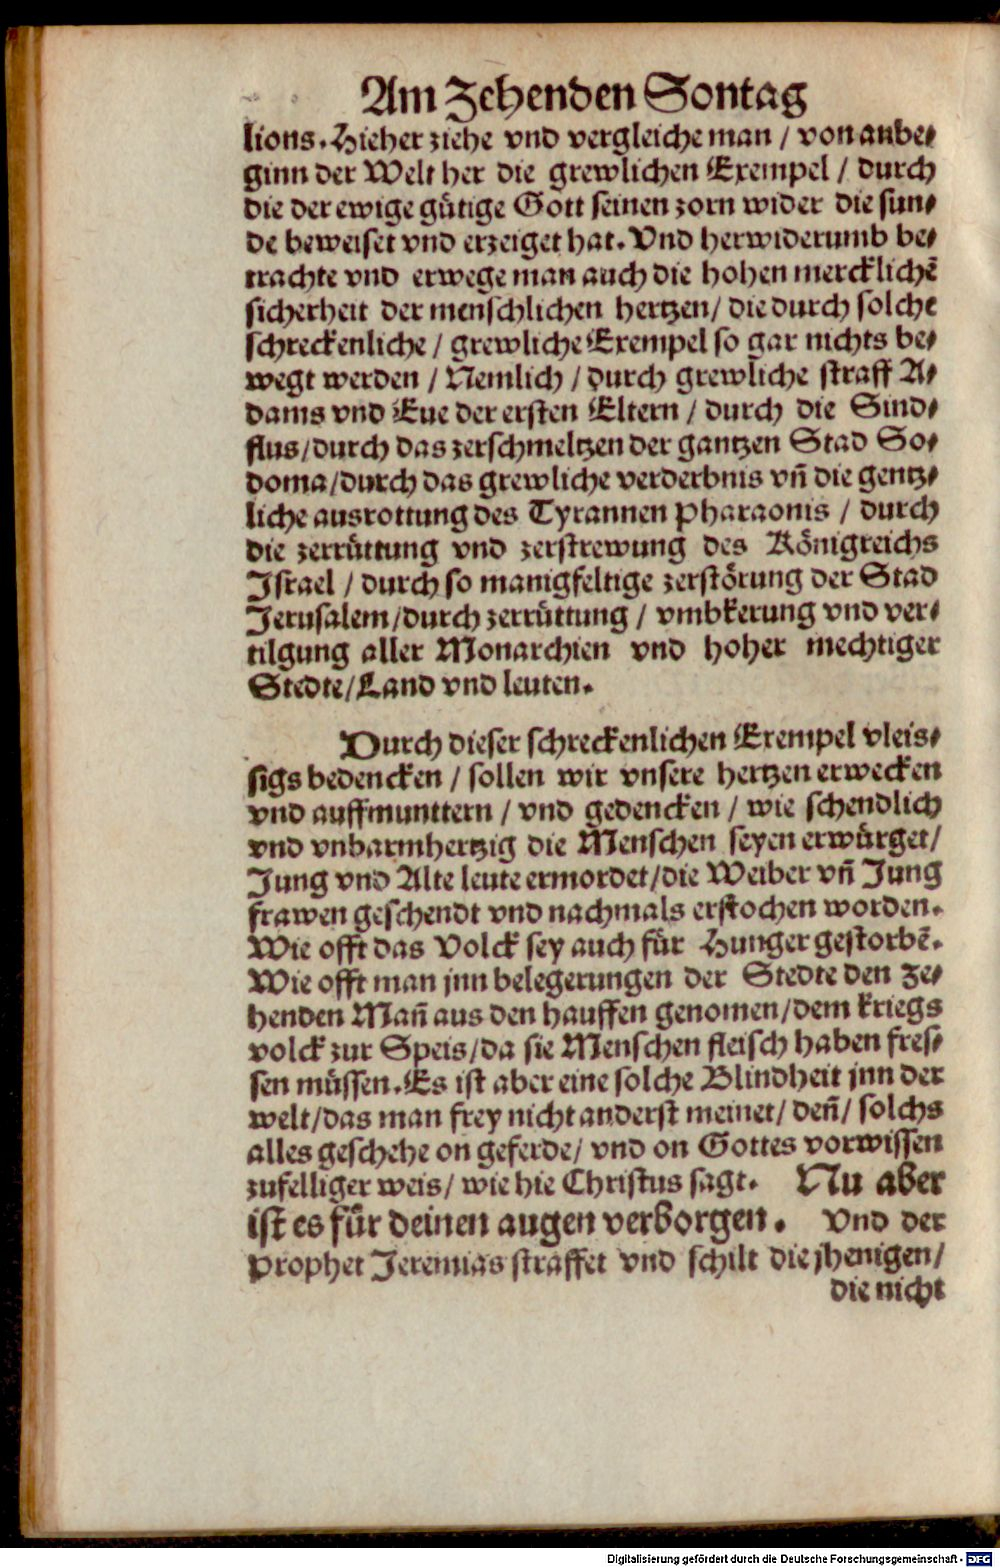 Am Zehenden Sontag
lions. Hieher ziehe vnd vergleiche man / von anbe⸗
ginn der Welt her die grewlichen Exempel / durch
die der ewige gütige Gott seinen zorn wider die sun⸗
de beweiset vnd erzeiget hat. Vnd herwiderumb be⸗
trachte vnd erwege man auch die hohen mercklichē
sicherheit der menschlichen hertzen / die durch solche
schreckenliche / grewliche Exempel so gar nichts be⸗
wegt werden / Nemlich / durch grewliche straff A⸗
dams vnd Eue der ersten Eltern / durch die Sind⸗
flus / durch das zerschmeltzen der gantzen Stad So⸗
doma / durch das grewliche verderbnis vñ die gentz⸗
liche ausrottung des Tyrannen Pharaonis / durch
die zerrüttung vnd zerstrewung des Königreichs
Israel / durch so manigfeltige zerstörung der Stad
Jerusalem / durch zerrüttung / vmbkerung vnd ver⸗
tilgung aller Monarchien vnd hoher mechtiger
Stedte / Land vnd leuten.
Durch dieser schreckenlichen Exempel vleis⸗
sigs bedencken / sollen wir vnsere hertzen erwecken
vnd auffmunttern / vnd gedencken / wie schendlich
vnd vnbarmhertzig die Menschen seyen erwürget /
Jung vnd Alte leute ermordet / die Weiber vñ Jung
frawen geschendt vnd nachmals erstochen worden.
Wie offt das Volck sey auch für Hunger gestorbē.
Wie offt man jnn belegerungen der Stedte den ze⸗
henden Mañ aus den hauffen genomen / dem kriegs
volck zur Speis / da sie Menschen fleisch haben fres⸗
sen müssen. Es ist aber eine solche Blindheit jnn der
welt / das man frey nicht anderst meinet / deñ / solchs
alles geschehe on geferde / vnd on Gottes vorwissen
zufelliger weis / wie hie Christus sagt. Nu aber
ist es für deinen augen verborgen. Vnd der
Prophet Jeremias straffet vnd schilt die jhenigen /
die nicht
Digitalisierung gefördert durch die Deutsche Forschungsgemeinschaft - DFG